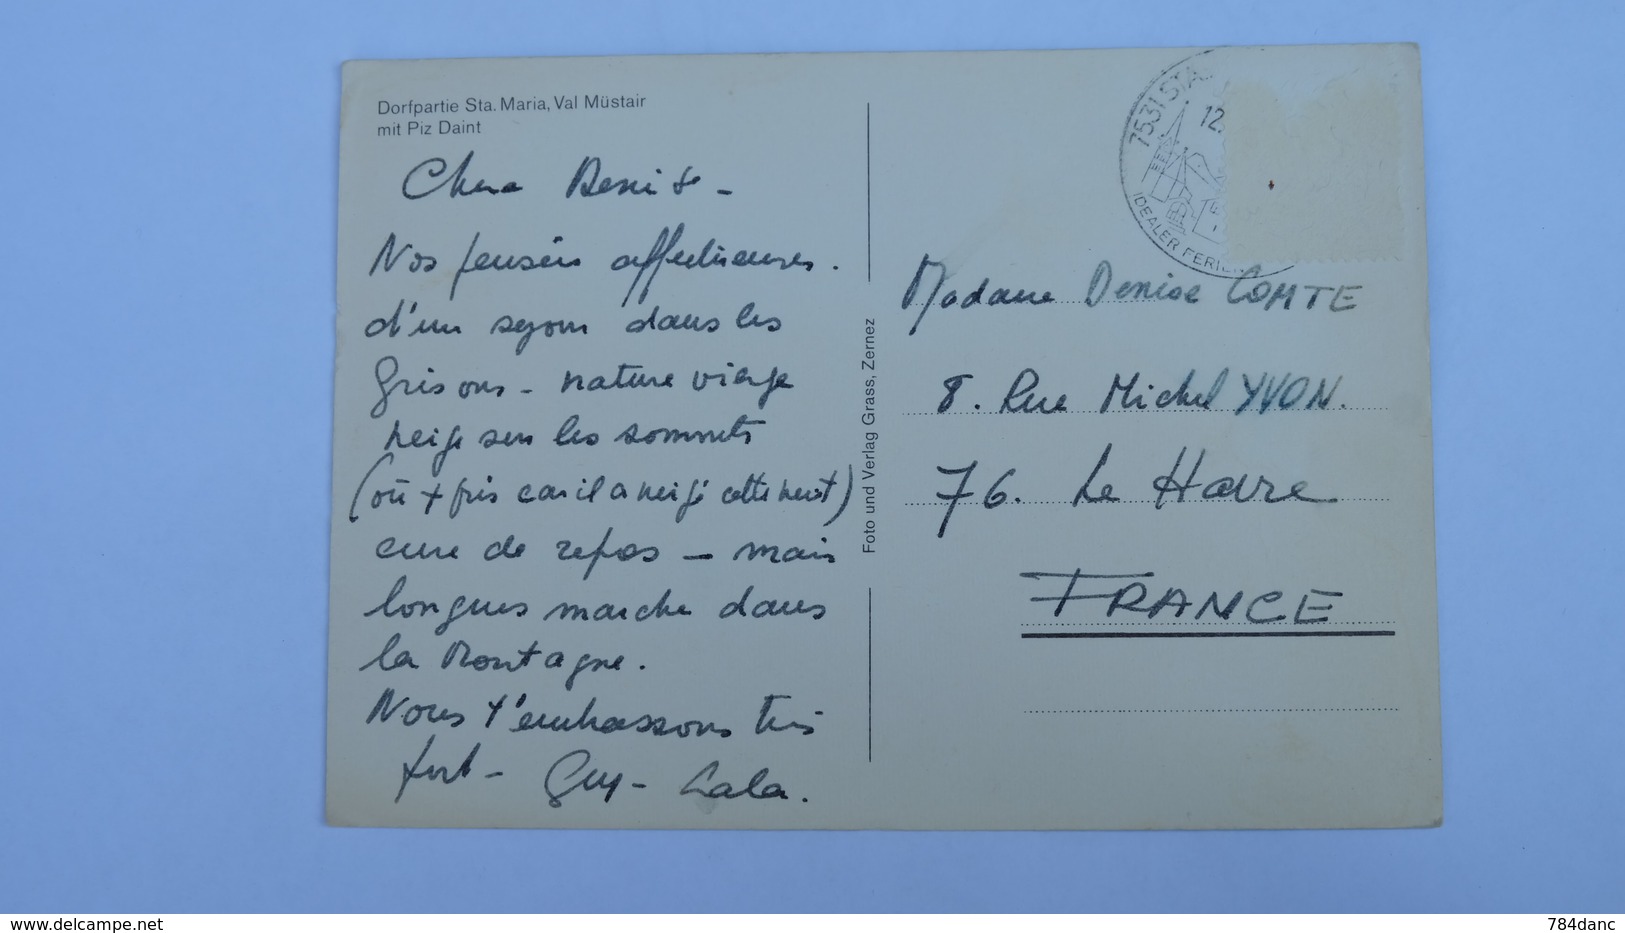 Dorfpartie Sta. Maria, Val Müstair
mit Piz Daint
Chère Denise -
Nos pensées affectueuses.
d'un séjour dans les
Grisons - nature vierge
neige sur les sommets
(où + frais car il a neigé cette nuit)
cure de repos - mais
longues marche dans
la Montagne.
Nous t'embrassons très
fort - Guy - Lala.
Foto und Verlag Grass, Zernez
7531 STA.
12.
IDEALER FERIEN
Madame Denise COMTE
8. Rue Michel YVON.
76. Le Havre
FRANCE
www.delcampe.net
784danc